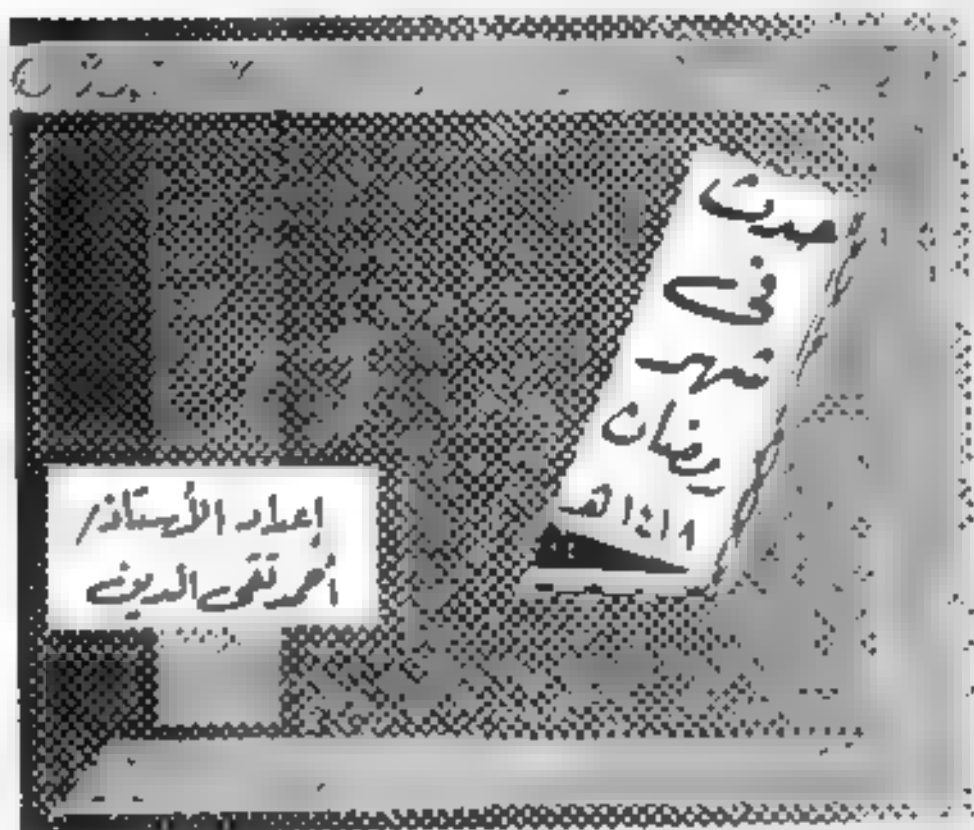 حدث
فى
شهر
رمضان
١٤١٨هـ
إعداد الأستاذ/
أحمد تقى الدين